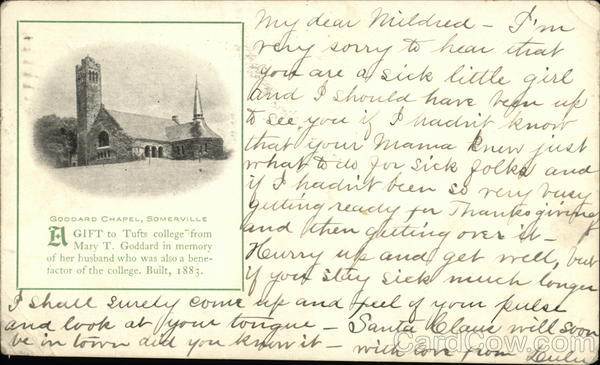 My dear Mildred – I'm
very sorry to hear that
you are a sick little girl
and I should have been up
to see you if I hadn't know
that your Mama knew just
what to do for sick folks and
if I hadn't been so very busy
getting ready for Thanksgiving
and then getting over it –
Hurry up and get well, but
if you stay sick much longer
I shall surely come up and feel of your pulse
and look at your tongue – Santa Claus will soon
be in town did you know it – with love from Lulu
GODDARD CHAPEL, SOMERVILLE
A GIFT to Tufts college from
Mary T. Goddard in memory
of her husband who was also a bene-
factor of the college. Built, 1883.
CardCow.com